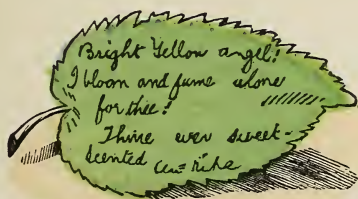 Bright Yellow angel!
I bloom and fume alone
for thee!
Thine ever sweet-
scented Cu-riha